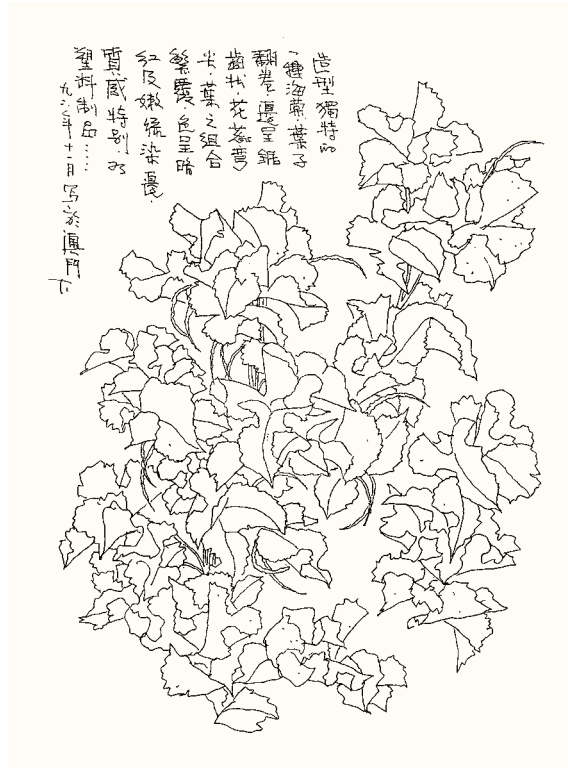 造型獨特的
一種海棠，葉子
翻卷，邊呈鋸
齒狀，花蕊彎
尖，葉之組合
繁覆，色呈暗
紅及嫩綠染邊，
質感特別，
塑料制品……
年十一月写於澳門